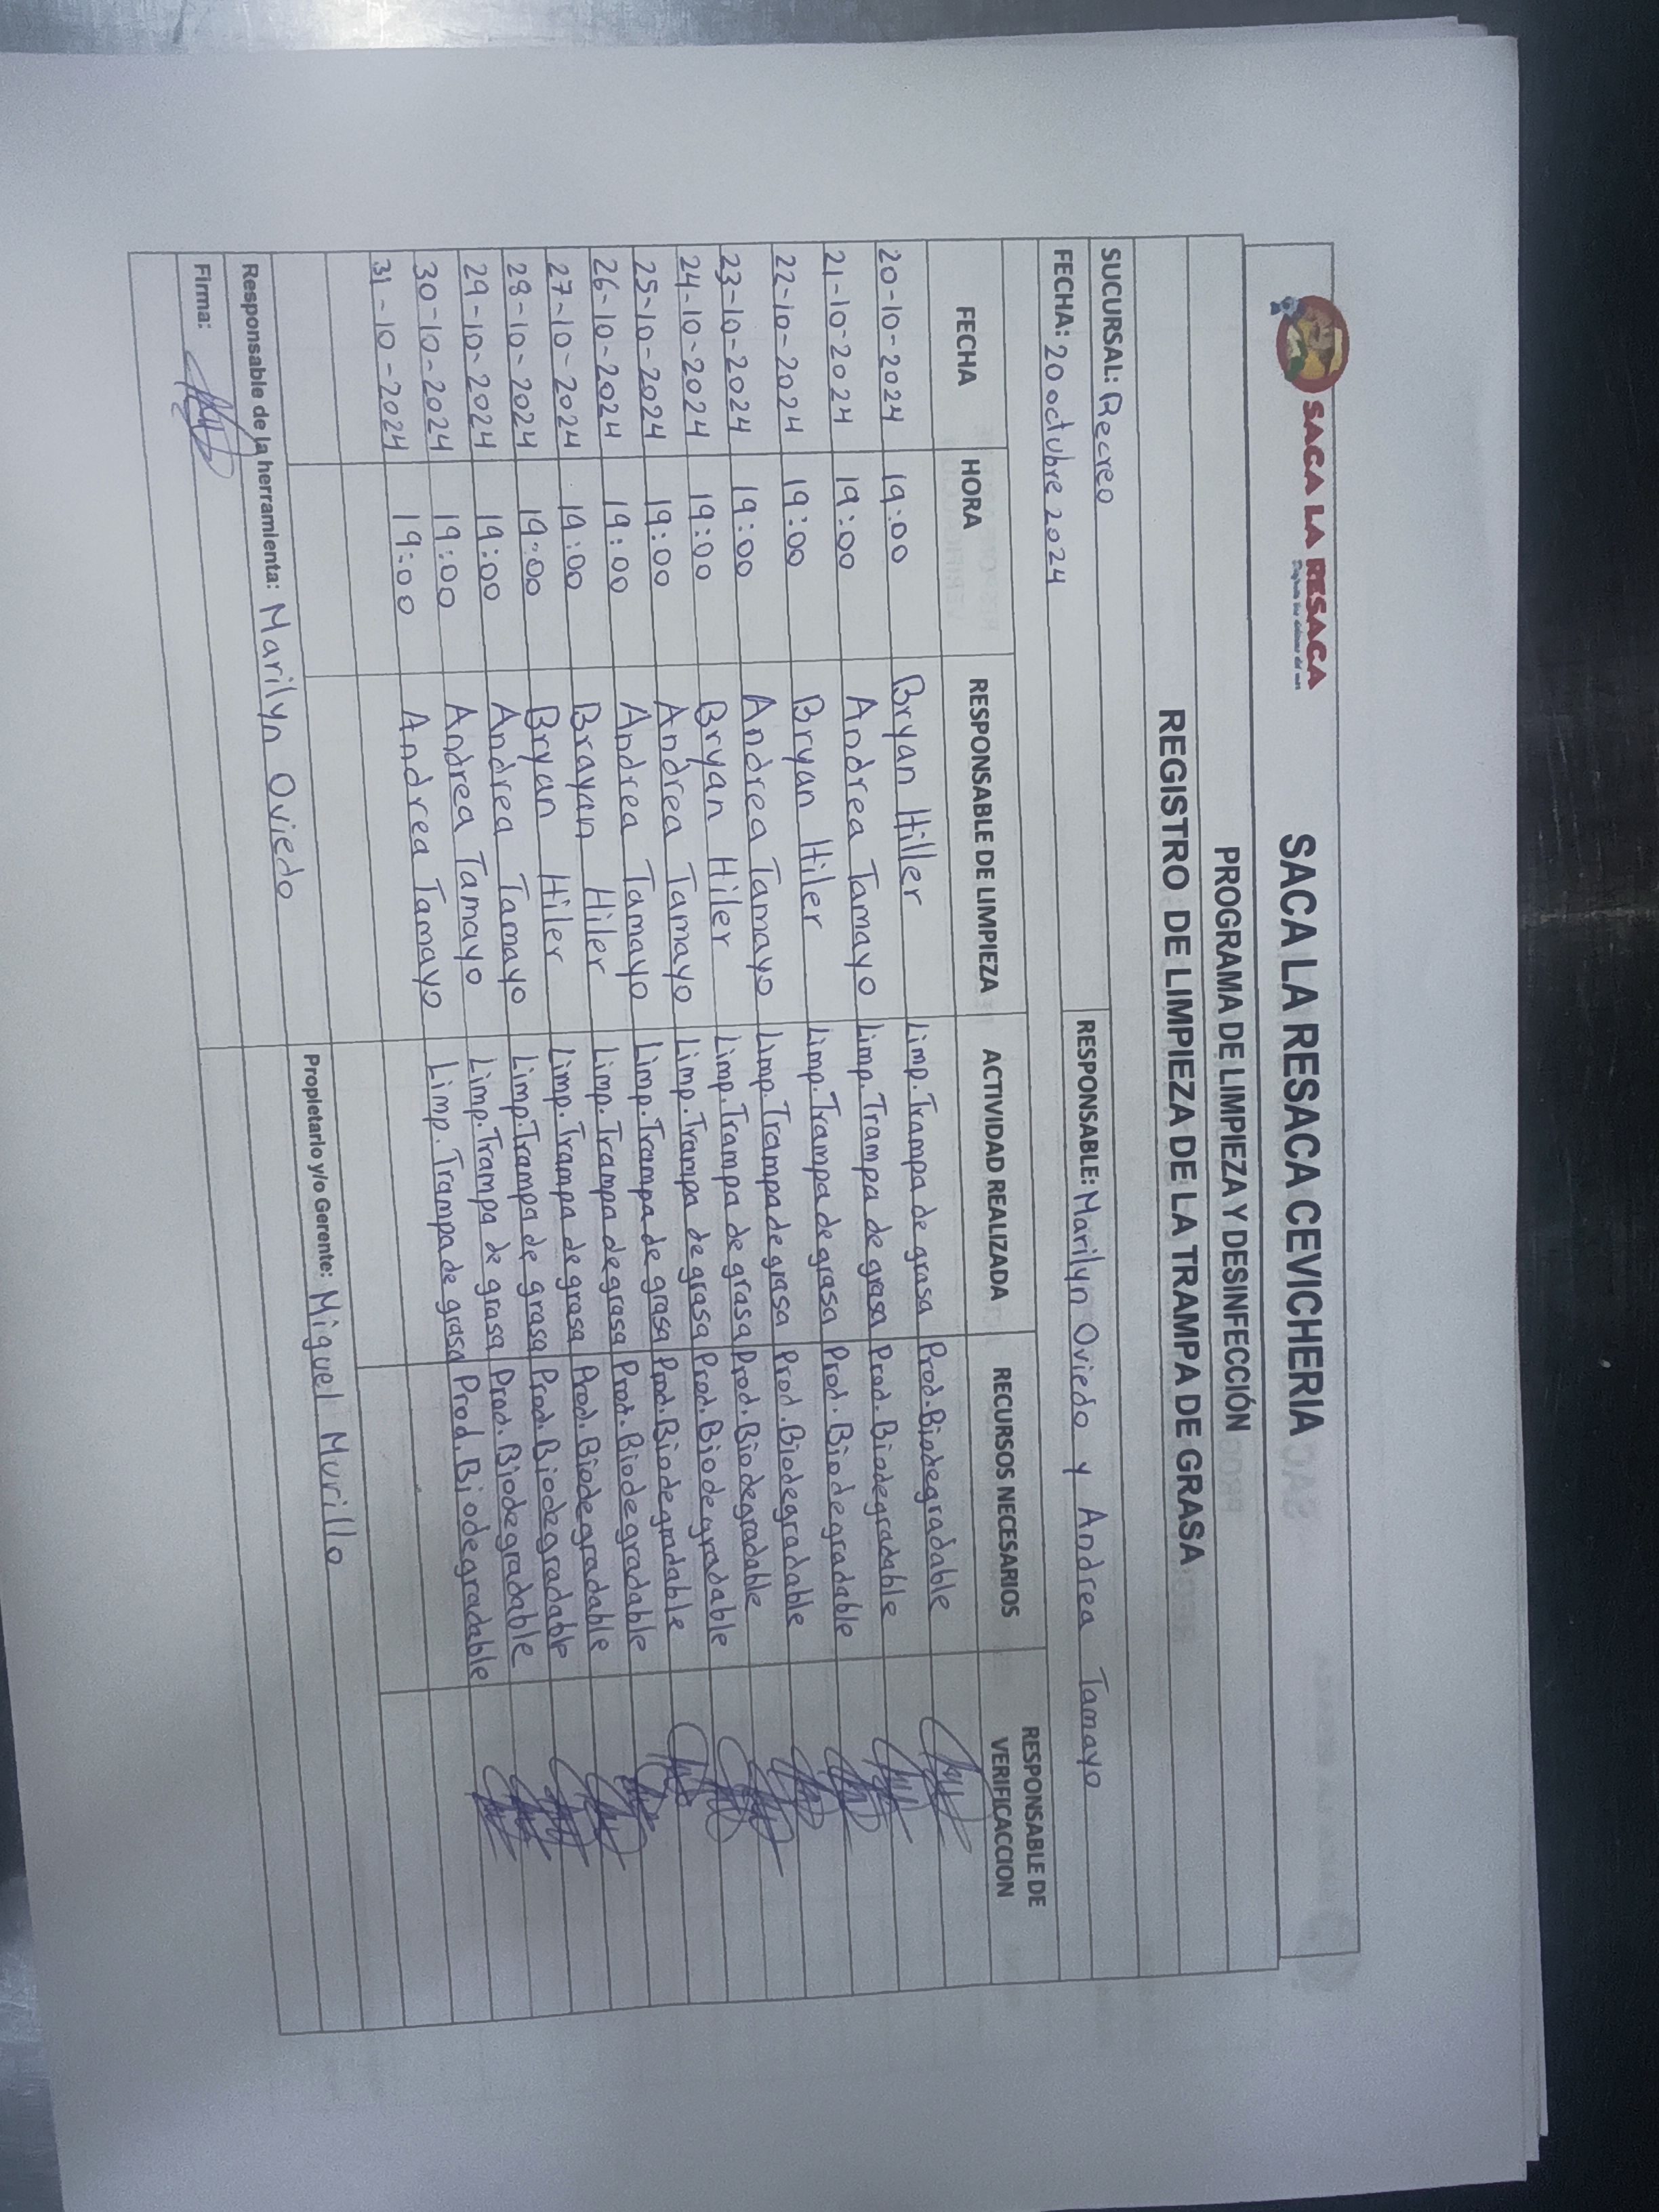 SACA LA RESACA
SACA LA RESACA CEVICHERIA
PROGRAMA DE LIMPIEZA Y DESINFECCIÓN
REGISTRO DE LIMPIEZA DE LA TRAMPA DE GRASA
SUCURSAL: Recreo RESPONSABLE: Marilyn Oviedo y Andrea Tamayo
FECHA: 20 octubre 2024
FECHA HORA RESPONSABLE DE LIMPIEZA ACTIVIDAD REALIZADA RECURSOS NECESARIOS RESPONSABLE DE VERIFICACCION
20-10-2024 19:00 Bryan Hiller Limp. Trampa de grasa Prod. Biodegradable
21-10-2024 19:00 Andrea Tamayo Limp. Trampa de grasa Prod. Biodegradable
22-10-2024 19:00 Bryan Hiler Limp. Trampa de grasa Prod. Biodegradable
23-10-2024 19:00 Andrea Tamayo Limp. Trampa de grasa Prod. Biodegradable
24-10-2024 19:00 Bryan Hiler Limp. Trampa de grasa Prod. Biodegradable
25-10-2024 19:00 Andrea Tamayo Limp. Trampa de grasa Prod. Biodegradable
26-10-2024 19:00 Andrea Tamayo Limp. Trampa de grasa Prod. Biodegradable
27-10-2024 19:00 Brayan Hiler Limp. Trampa de grasa Prod. Biodegradable
28-10-2024 19:00 Bryan Hiler Limp. Trampa de grasa Prod. Biodegradable
29-10-2024 19:00 Andrea Tamayo Limp. Trampa de grasa Prod. Biodegradable
30-10-2024 19:00 Andrea Tamayo Limp. Trampa de grasa Prod. Biodegradable
31-10-2024 19:00 Andrea Tamayo Limp. Trampa de grasa Prod. Biodegradable
Responsable de la herramienta: Marilyn Oviedo Propietario y/o Gerente: Miguel Murillo
Firma: